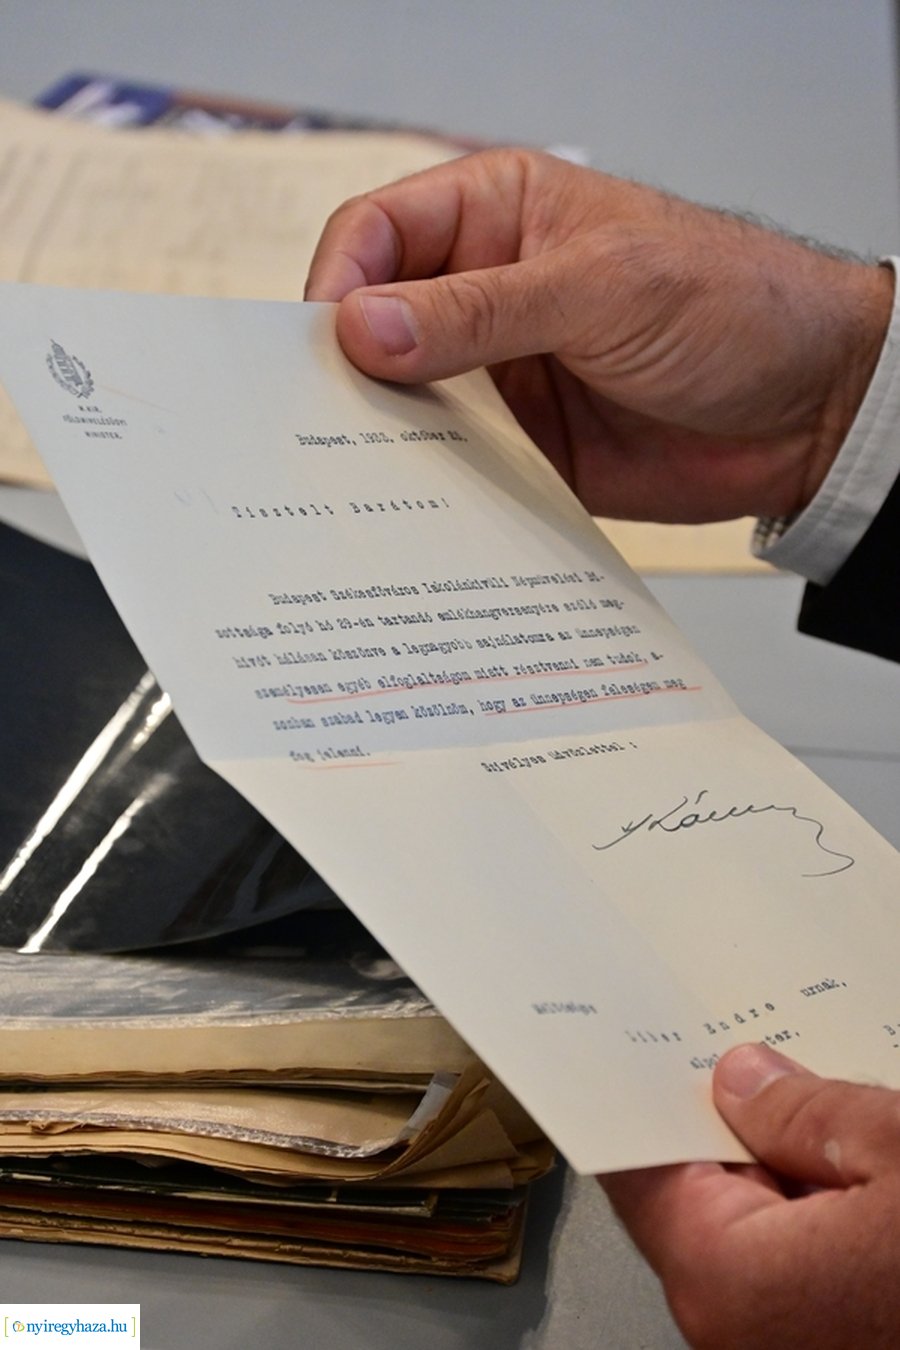 M. KIR.
FÖLDMIVELÉSÜGYI
MINISTER.
Budapest, 1933. október
Tisztelt Barátom!
Budapest Székesfőváros Iskolánkívüli Népművelési Bi-
zottsága folyó hó 29-én tartandó emlékhangversenyére szóló meg-
hívót hálásan köszönve a legnagyobb sajnálatomra az ünnepségen
személyesen egyéb elfoglaltságom miatt résztvenni nem tudok, a-
zonban szabad legyen közölnöm, hogy az ünnepségen feleségem meg
fog jelenni.
Szívélyes üdvözlettel:
Méltóságos
Liber Endre urnak,
nyiregyhaza.hu